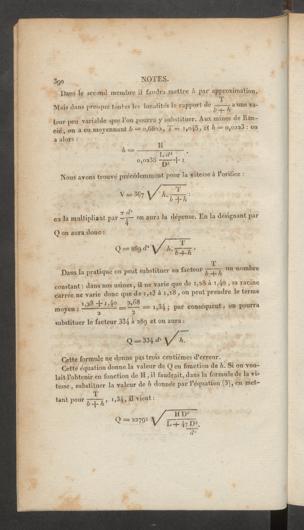 390 NOTES.
Dans le second membre il faudra mettre h par approximation.
Mais dans presque toutes les localités le rapport de T/(b+h) a une va-
leur peu variable que l'on pourra y substituer. Aux mines de Ran-
cié, on a eu moyennant b = 0,6802, T = 1,045, et h = 0,0223 : on
a alors :
h = H / (0,0235 L d⁴/D⁵ + 1) .
Nous avons trouvé précédemment pour la vitesse à l'orifice :
V = 367 √(h. T/(b+h)) :
en la multipliant par π d²/4 on aura la dépense. En la désignant par
Q on aura donc :
Q = 289 d² √(h. T/(b+h)) .
Dans la pratique on peut substituer au facteur T/(b+h) un nombre
constant : dans nos usines, il ne varie que de 1,28 à 1,40, sa racine
carrée ne varie donc que de 1,13 à 1,18, on peut prendre le terme
moyen : (1,28 + 1,40)/2 = 2,68/2 = 1,34 ; par conséquent, on pourra
substituer le facteur 334 à 289 et on aura :
Q = 334 d² √h.
Cette formule ne donne pas trois centièmes d'erreur.
Cette équation donne la valeur de Q en fonction de h. Si on vou-
lait l'obtenir en fonction de H, il faudrait, dans la formule de la vi-
tesse, substituer la valeur de h donnée par l'équation (3), en met-
tant pour T/(b+h), 1,34, il vient :
Q = √(H D⁵ / (L + 47 D⁵/d⁴))